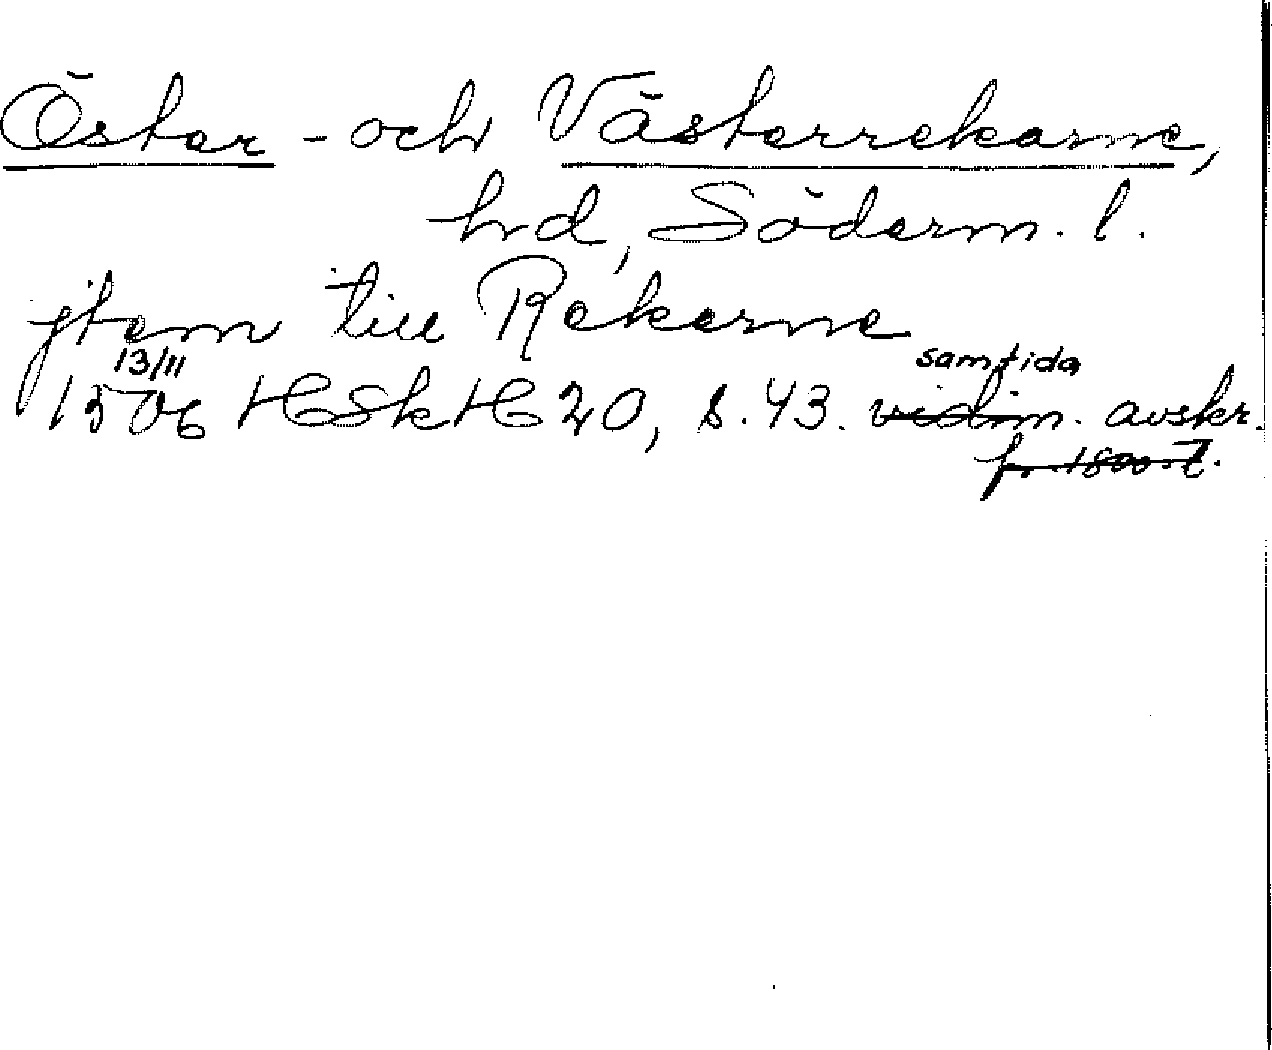 Öster- och Västerrekarne,
hd, Söderm. l.
jtem till Rekerne
13/11 samtida
1506 HSkH 20, s. 43. vidim. avskr.
fr. 1800-t.